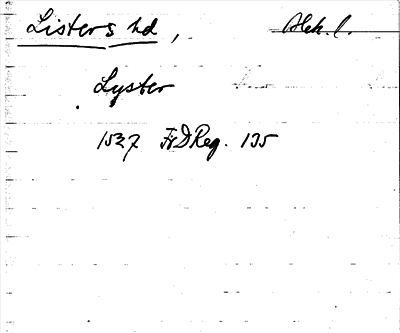 Listers hd,
Blek. l.
Lyster
1537 FrDReg. 135